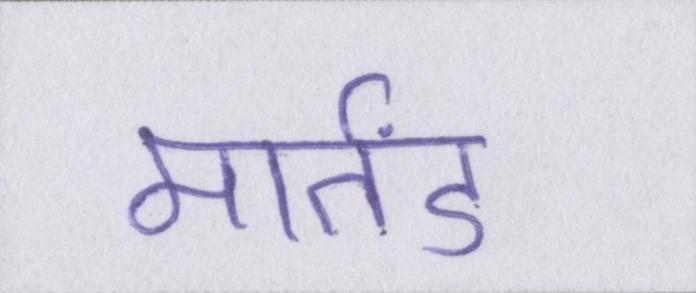 मार्तंड